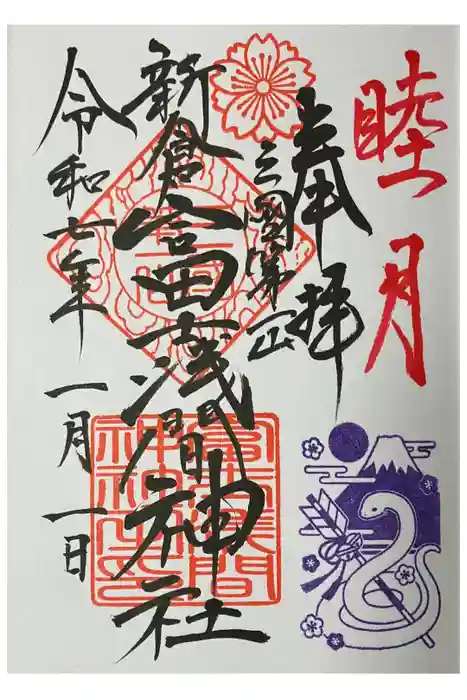 睦月
奉拝
三國第一山
新倉富士浅間神社
令和七年一月一日